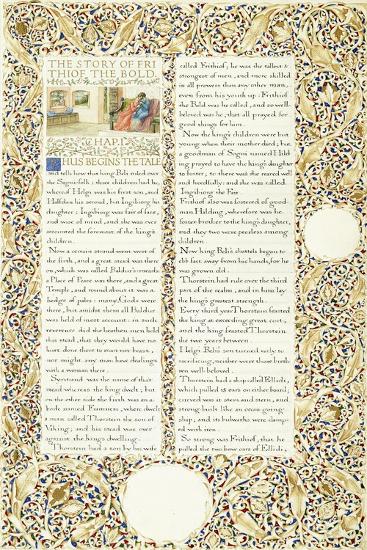 THE STORY OF FRI
THIOF THE BOLD.
CHAP. I.
THUS BEGINS THE TALE
and tells how that king Beli ruled over
the Sogni-folk: three children had he,
whereof Helgi was his first son, and
Halfdan his second, but Ingibiorg his
daughter: Ingibiorg was fair of face,
and wise of mind, and she was
accounted the foremost of the king's
children.
Now a certain strand went west of
the firth, and a great stead was there
on, which was called Baldur's meads
a Place of Peace was there, and a great
Temple, and round about it was a
hedge of pales: many Gods were
there, but amidst them all Baldur
was held of most account: in such
reverence did the heathen men hold
this stead, that they would have no
hurt done there to man nor beast,
nor might any man have dealings
with a woman there.
Syrstrand was the name of that
stead whereas the king dwelt; but
on the other side the firth was an a-
bode named Foreness, where dwelt
a man called Thorstein the son of
Viking; and his stead was over
against the king's dwelling.
Thorstein had a son by his wife
called Frithiof; he was the tallest &
strongest of men, and more skilled
in all prowess than any other man,
even from his youth up: Frithiof
the Bold was he called, and so well-
beloved was he, that all prayed for
good things for him.
Now the king's children were but
young when their mother died; but
a goodman of Sogni named Hild-
ing prayed to have the king's daughter
to foster; so there was she reared well
and heedfully: and she was called
Ingibiorg the Fair.
Frithiof also was fostered of good-
man Hilding, wherefore was he
foster-brother to the king's daughter,
and they two were peerless among
children.
Now king Beli's chattels began to
ebb fast away from his hands, for he
was grown old.
Thorstein had rule over the third
part of the realm, and in him lay
the king's greatest strength.
Every third year Thorstein feasted
the king at exceeding great cost,
and the king feasted Thorstein
the two years between.
Helgi Beli's son turned early to
sacrificing, neither were those breth-
ren well-beloved:
Thorstein had a ship called Ellida,
which pulled 15 oars on either board;
carved was it stem and stern, and
strong-built like an ocean-going
ship, and its bulwarks were clamp-
ed with iron.
So strong was Frithiof, that he
pulled the two bow oars of Ellida,